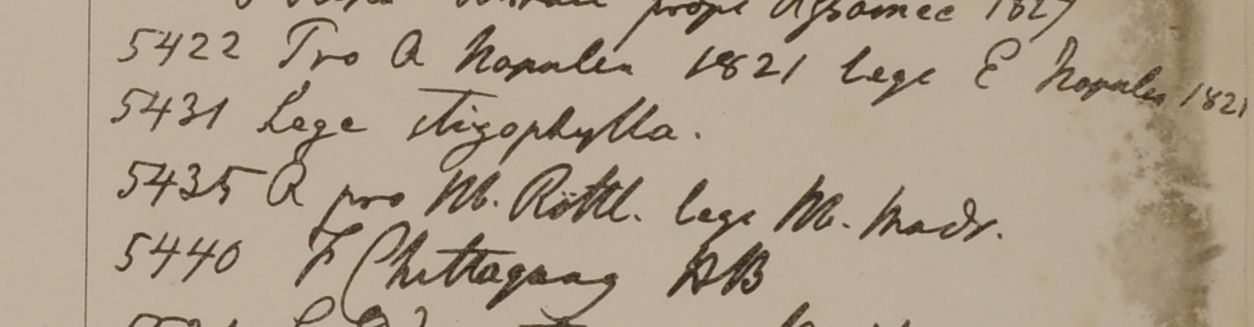 prope 1827
5422 Pro A Napalea 1821 lege E Napalea 1821
5431 Lege stizophylla.
5435 A pro M. Röttl. lege M. Madr.
5440 F Chittagong HB